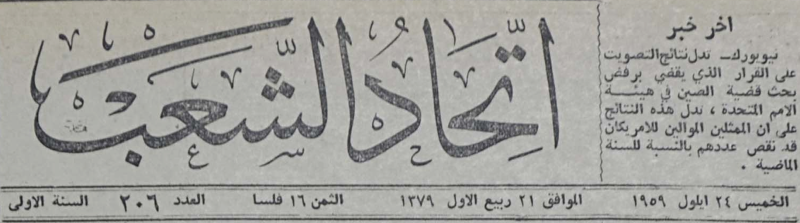 اخر خبر
نيويورك ــ تدل نتائج التصويت
على القرار الذي يقضي برفض
بحث قضية الصين في هيئة
الامم المتحدة ، تدل هذه النتائج
على ان الممثلين الموالين للامريكان
قد نقص عددهم بالنسبة للسنة
الماضية .
اتِّحَادُ الشَّعب
الخميس ٢٤ ايلول ١٩٥٩ الموافق ٢١ ربيع الاول ١٣٧٩ الثمن ١٦ فلسا العدد ٢٠٦ السنة الاولى